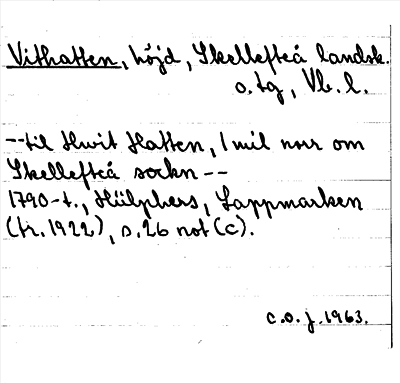 Vithatten, höjd, Skellefteå landsk.
o. tg, Vb. l.
-- til Hwit Hatten, 1 mil norr om
Skellefteå sockn --
1790-t., Hülphers, Lappmarken
(tr. 1922), s. 26 not (c).
c.o.j. 1963.